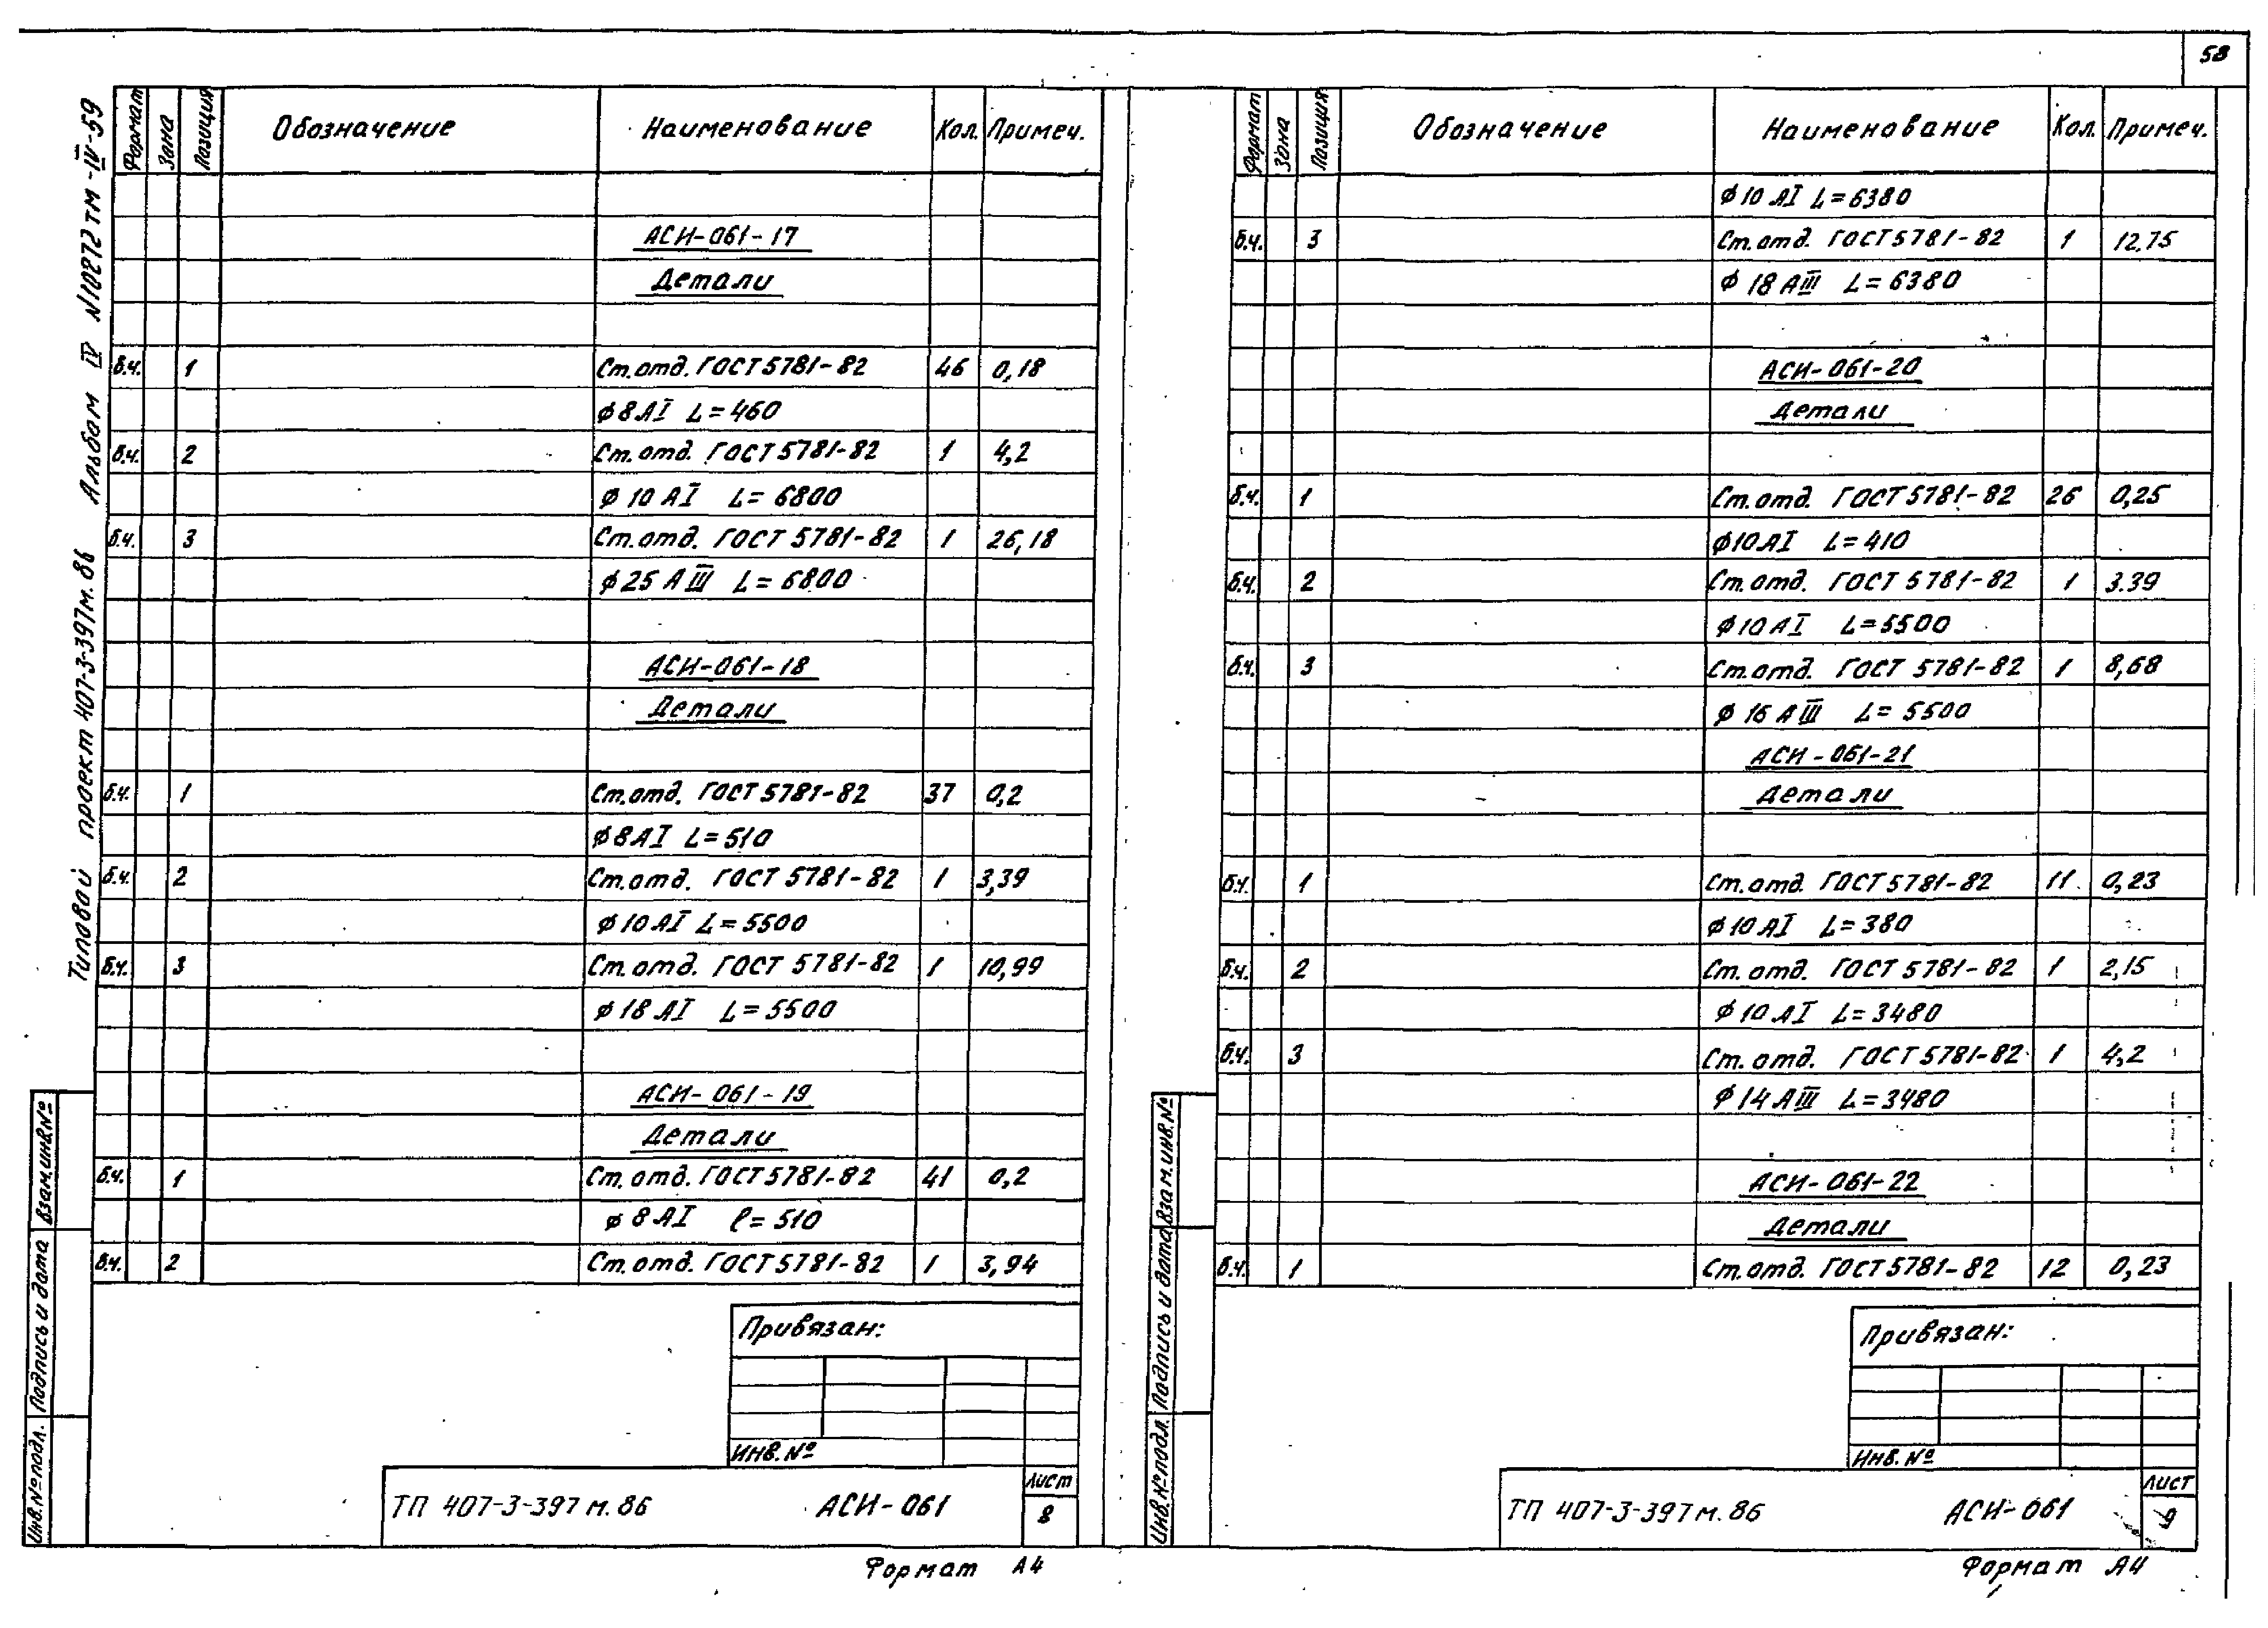 58
Типовой проект 407-3-397м.86 Альбом IV N10272тм-IV-59
Формат Зона Позиция Обозначение Наименование Кол. Примеч.
АСИ-061-17
Детали
б.ч. 1 Ст.отд. ГОСТ 5781-82 46 0,18
ф8АI L=460
б.ч. 2 Ст.отд. ГОСТ 5781-82 1 4,2
ф10АI L=6800
б.ч. 3 Ст.отд. ГОСТ 5781-82 1 26,18
ф25АIII L=6800
АСИ-061-18
Детали
б.ч. 1 Ст.отд. ГОСТ 5781-82 37 0,2
ф8АI L=510
б.ч. 2 Ст.отд. ГОСТ 5781-82 1 3,39
ф10АI L=5500
б.ч. 3 Ст.отд. ГОСТ 5781-82 1 10,99
ф18АI L=5500
АСИ-061-19
Детали
б.ч. 1 Ст.отд. ГОСТ 5781-82 41 0,2
ф8АI ℓ=510
б.ч. 2 Ст.отд. ГОСТ 5781-82 1 3,94
Привязан:
Инв.№
ТП 407-3-397м.86 АСИ-061 Лист
8
Инв.№подл. Подпись и дата Взам.инв.№
Формат А4
Формат Зона Позиция Обозначение Наименование Кол. Примеч.
ф10АI L=6380
б.ч. 3 Ст.отд. ГОСТ 5781-82 1 12.75
ф18АIII L=6380
АСИ-061-20
Детали
б.ч. 1 Ст.отд. ГОСТ 5781-82 26 0,25
ф10АI L=410
б.ч. 2 Ст.отд. ГОСТ 5781-82 1 3.39
ф10АI L=5500
б.ч. 3 Ст.отд. ГОСТ 5781-82 1 8,68
ф16АIII L=5500
АСИ-061-21
Детали
б.ч. 1 Ст.отд. ГОСТ 5781-82 11 0,23
ф10АI L=380
б.ч. 2 Ст.отд. ГОСТ 5781-82 1 2,15
ф10АI L=3480
б.ч. 3 Ст.отд. ГОСТ 5781-82 1 4,2
ф14АIII L=3480
АСИ-061-22
Детали
б.ч. 1 Ст.отд. ГОСТ 5781-82 12 0,23
Привязан:
Инв.№
ТП 407-3-397м.86 АСИ-061 Лист
9
Инв.№подл. Подпись и дата Взам.инв.№
Формат А4